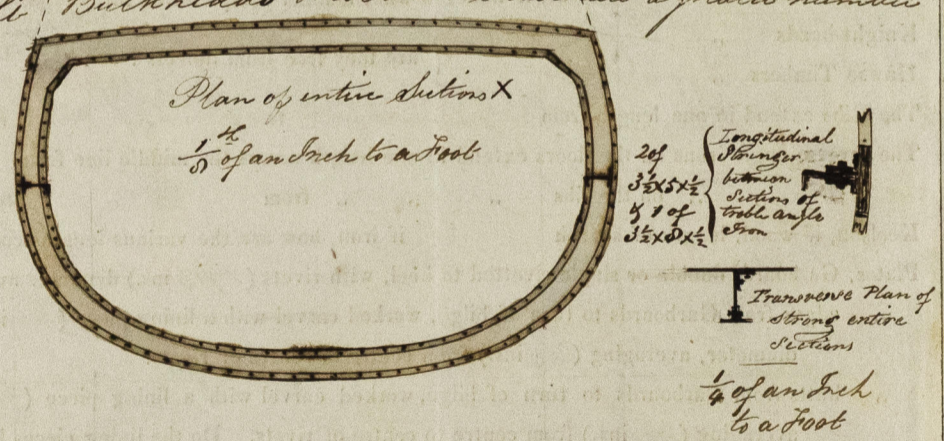 Bulkheads
Plan of entire Sections X
1/8 of an Inch to a Foot
2 of
3 1/2 x 5 x 1/2
& 1 of
3 1/2 x 8 x 1/2
Longitudinal
Stringer
between
Sections of
treble angle
Iron
Transverse Plan of
Strong entire
Sections
1/4 of an Inch
to a Foot